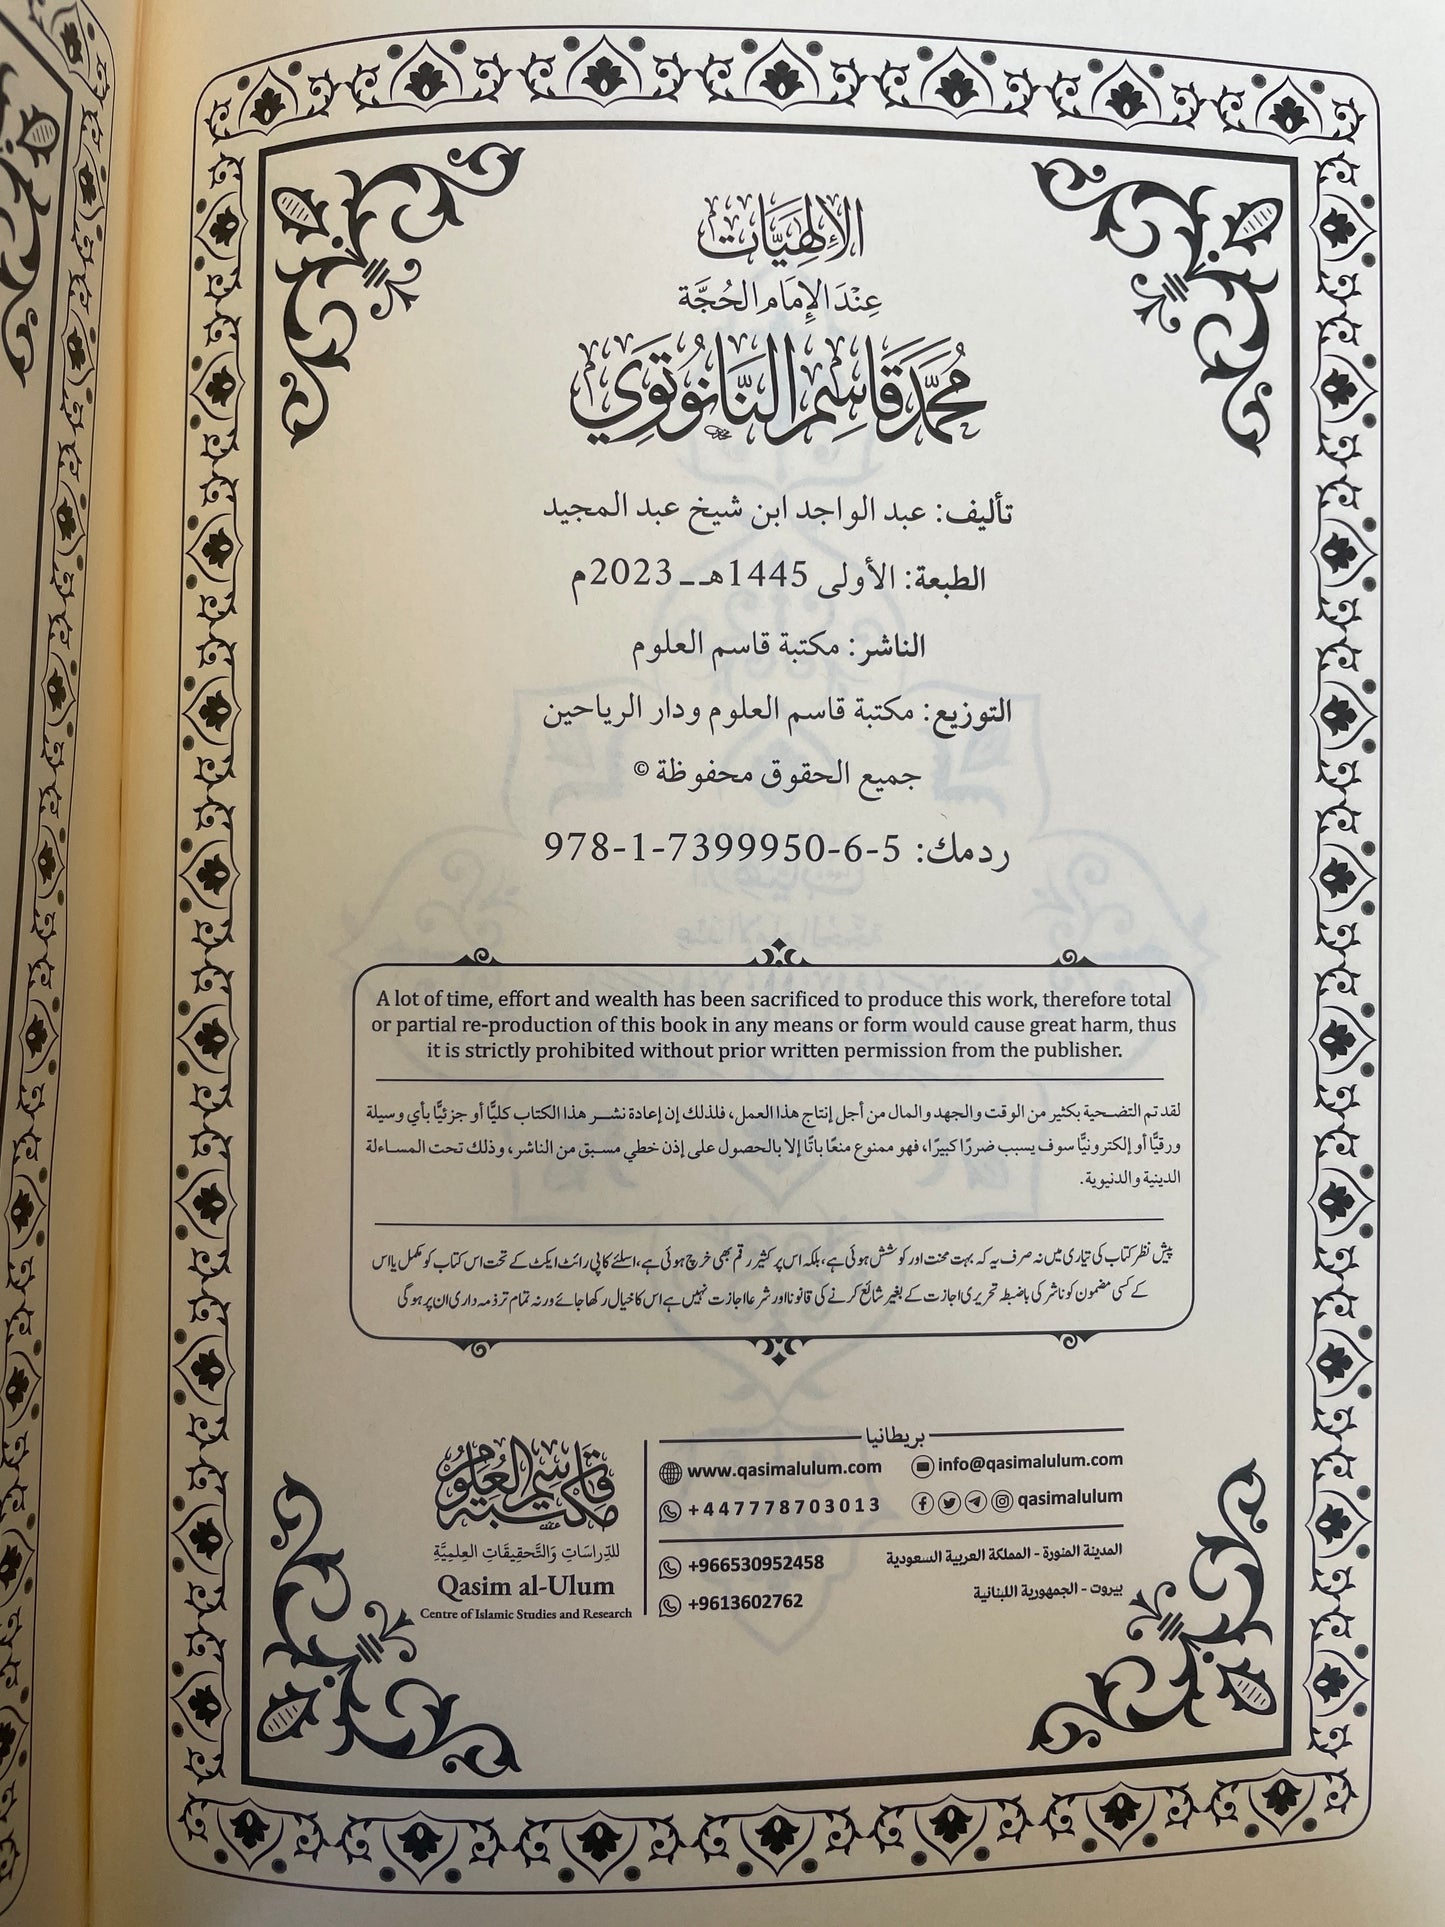 الإلهيات
عِنْدَ الإِمَامِ الحُجَّة
مُحَمَّد قَاسِم النَّانُوتَوِي
تأليف: عبد الواجد ابن شيخ عبد المجيد
الطبعة: الأولى 1445هـ ـ 2023م
الناشر: مكتبة قاسم العلوم
التوزيع: مكتبة قاسم العلوم ودار الرياحين
جميع الحقوق محفوظة ©
ردمك: 978-1-7399950-6-5
A lot of time, effort and wealth has been sacrificed to produce this work, therefore total
or partial re-production of this book in any means or form would cause great harm, thus
it is strictly prohibited without prior written permission from the publisher.
لقد تم التضحية بكثير من الوقت والجهد والمال من أجل إنتاج هذا العمل، فلذلك إن إعادة نشر هذا الكتاب كليًّا أو جزئيًّا بأي وسيلة
ورقيًّا أو إلكترونيًّا سوف يسبب ضررًا كبيرًا، فهو ممنوع منعًا باتًّا إلا بالحصول على إذن خطي مسبق من الناشر، وذلك تحت المساءلة
الدينية والدنيوية.
پیش نظر کتاب کی تیاری میں نہ صرف یہ کہ بہت محنت اور کوشش ہوئی ہے، بلکہ اس پر کثیر رقم بھی خرچ ہوئی ہے، اسلئے کاپی رائٹ ایکٹ کے تحت اس کتاب کو مکمل یا اس
کے کسی مضمون کو ناشر کی باضبطہ تحریری اجازت کے بغیر شائع کرنے کی قانونا اور شرعا اجازت نہیں ہے اس کا خیال رکھا جائے ورنہ تمام تر ذمہ داری ان پر ہوگی
مكتبة قاسم العلوم
للدِّرَاسَاتِ وَالتَّحقِيقَاتِ العِلمِيَّةِ
Qasim al-Ulum
Centre of Islamic Studies and Research
بريطانيا
www.qasimalulum.com info@qasimalulum.com
+447778703013 qasimalulum
+966530952458 المدينة المنورة - المملكة العربية السعودية
+9613602762 بيروت - الجمهورية اللبنانية